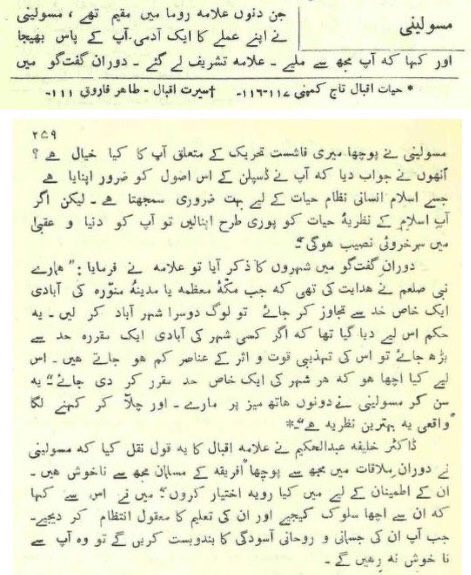 جن دنوں علامہ روما میں مقیم تھے ، مسولینی
مسولینی
نے اپنے عملے کا ایک آدمی آپ کے پاس بھیجا
اور کہا کہ آپ مجھ سے ملیے ۔ علامہ تشریف لے گئے ۔ دوران گفتگو میں
* حیات اقبال تاج کمپنی ۱۱۷-۱۱۶- †سیرت اقبال - طاہر فاروق ۱۱۱-
۲۵۹
مسولینی نے پوچھا میری فاشست تحریک کے متعلق آپ کا کیا خیال ہے ؟
آنھوں نے جواب دیا کہ آپ نے ڈسپلن کے اس اصول کو ضرور اپنایا ہے
جسے اسلام انسانی نظام حیات کے لیے بہت ضروری سمجھتا ہے ۔ لیکن اگر
آپ اسلام کے نظریۂ حیات کو پوری طرح اپنالیں تو آپ کو دنیا و عقبیٰ
میں سرخروئی نصیب ہوگی“۔
دوران گفتگو میں شہروں کا ذکر آیا تو علامہ نے فرمایا : ”ہمارے
نبی صلعم نے ہدایت کی تھی کہ جب مکۂ معظمہ یا مدینۂ منورہ کی آبادی
ایک خاص حد سے تجاوز کر جائے تو لوگ دوسرا شہر آباد کر لیں ۔ یہ
حکم اس لیے دیا گیا تھا کہ اگر کسی شہر کی آبادی ایک مقررہ حد سے
بڑھ جائے تو اس کی تہذیبی قوت و اثر کے عناصر کم ہو جاتے ہیں ۔ اس
لیے کیا اچھا ہو کہ ہر شہر کی ایک خاص حد مقرر کر دی جائے“ یہ
سن کر مسولینی نے دونوں ہاتھ میز پر مارے ۔ اور چلّا کر کہنے لگا
”واقعی یہ بہترین نظریہ ہے“۔*
ڈاکٹر خلیفہ عبدالحکیم نے علامہ اقبال کا یہ قول نقل کیا کہ مسولینی
نے دوران ملاقات میں مجھ سے پوچھا ”افریقہ کے مسلمان مجھ سے ناخوش ہیں ۔
ان کے اطمینان کے لیے میں کیا رویہ اختیار کروں“ میں نے اس سے کہا
کہ ان سے اچھا سلوک کیجیے اور ان کی تعلیم کا معقول انتظام کر دیجیے۔
جب آپ ان کی جسمانی و روحانی آسودگی کا بندوبست کریں گے تو وہ آپ سے
نا خوش نہ رہیں گے ۔